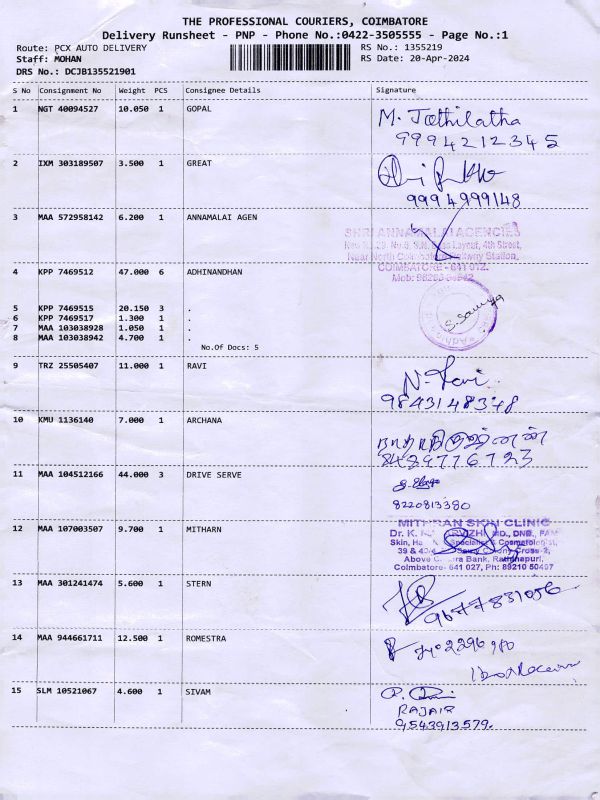 THE PROFESSIONAL COURIERS, COIMBATORE
Delivery Runsheet - PNP - Phone No.:0422-3505555 - Page No.:1
Route: PCX AUTO DELIVERY RS No.: 1355219
Staff: MOHAN RS Date: 20-Apr-2024
DRS No.: DCJB135521901
S No Consignment No Weight PCS Consignee Details Signature
1 NGT 40094527 10.050 1 GOPAL M. Jothilatha
9994212345
2 IXM 303189507 3.500 1 GREAT
9994999148
3 MAA 572958142 6.200 1 ANNAMALAI AGEN
SHRI ANNAMALAI AGENCIES
Layout, 4th Street,
Near North Railway Station,
COIMBATORE - 641 012.
Mob:
4 KPP 7469512 47.000 6 ADHINANDHAN
5 KPP 7469515 20.150 3 .
6 KPP 7469517 1.300 1 .
7 MAA 103038928 1.050 1 .
8 MAA 103038942 4.700 1 .
No.Of Docs: 5
S. Sowmya
9 TRZ 25505407 11.000 1 RAVI N. Ravi
9843148348
10 KMU 1136140 7.000 1 ARCHANA
8489776723
11 MAA 104512166 44.000 3 DRIVE SERVE
8220813380
12 MAA 107003507 9.700 1 MITHARN
MITHRAN SKIN CLINIC
Dr. K. MD., DNB., FAM
Skin, Specialist & Cosmetologist,
39 & Colony Cross-2,
Above Bank, Rathinapuri,
Coimbatore- 641 027, Ph: 89210 50497
13 MAA 301241474 5.600 1 STERN
9677831056
14 MAA 944661711 12.500 1 ROMESTRA
15 SLM 10521067 4.600 1 SIVAM
RAJAIR
9543913579.